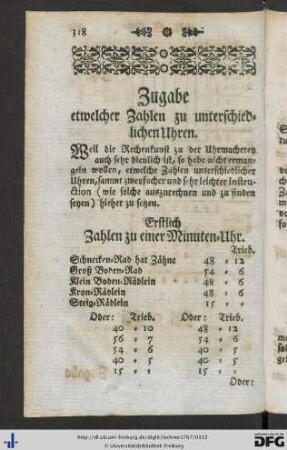 318
Zugabe
etwelcher Zahlen zu unterschied-
lichen Uhren.
Weil die Rechenkunst zu der Uhrmacherey
auch sehr dienlich ist, so habe nicht erman-
geln wollen, etwelche Zahlen unterschiedlicher
Uhren, sammt zweyfacher und sehr leichter Instru-
ction (wie solche auszurechnen und zu finden
seyen) hieher zu setzen.
Erstlich
Zahlen zu einer Minuten-Uhr.
Trieb.
Schnecken-Rad hat Zähne 48 = 12
Groß Boden-Rad 54 = 6
Klein Boden-Rädlein 48 = 6
Kron-Rädlein 48 = 6
Steig-Rädlein 15 =
Oder: Trieb. Oder: Trieb.
40 = 10 48 = 12
56 = 7 54 = 6
54 = 6 40 = 5
40 = 5 40 = 5
15 = 15 =
Oder:
http://dl.ub.uni-freiburg.de/diglit/lechner1767/0322
© Universitätsbibliothek Freiburg
gefördert durch die
DFG